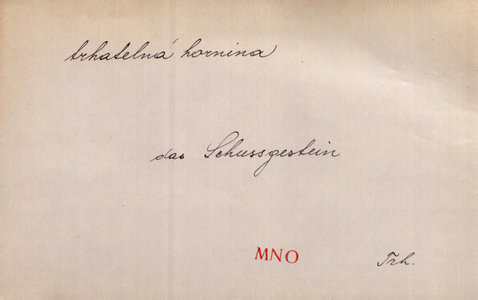 trhatelná hornina
das Schussgestein
MNO
Trh.